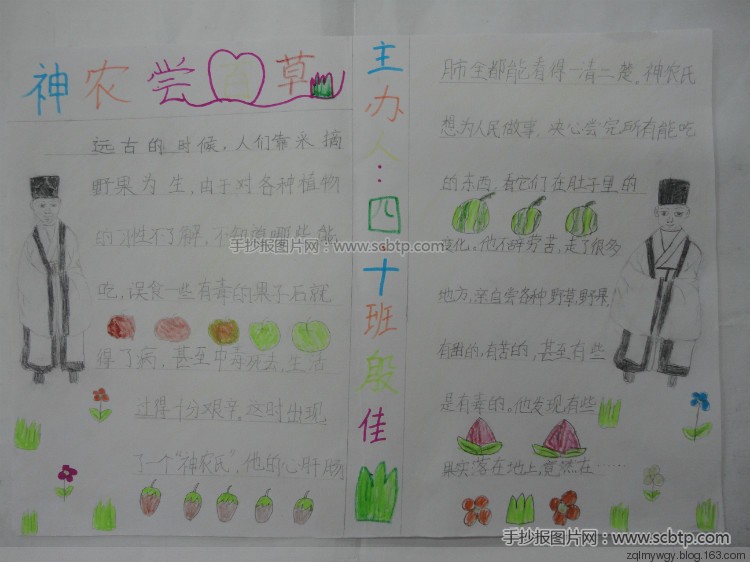 神农尝百草
远古的时候，人们靠采摘
野果为生，由于对各种植物
的习性不了解，不知道哪些能
吃，误食一些有毒的果子后就
得了病，甚至中毒死去，生活
过得十分艰辛。这时出现
了一个“神农氏”，他的心肝肠
主办人：四·十班段佳
肺全都能看得一清二楚。神农氏
想为人民做事，决心尝完所有能吃
的东西，看它们在肚子里的
变化。他不辞劳苦，走了很多
地方，亲自尝各种野草、野果，
有甜的，有苦的，甚至有些
是有毒的。他发现有些
果实落在地上，竟然在……
手抄报图片网：www.scbtp.com
手抄报图片网：www.scbtp.com
zqlmywgy.blog.163.com